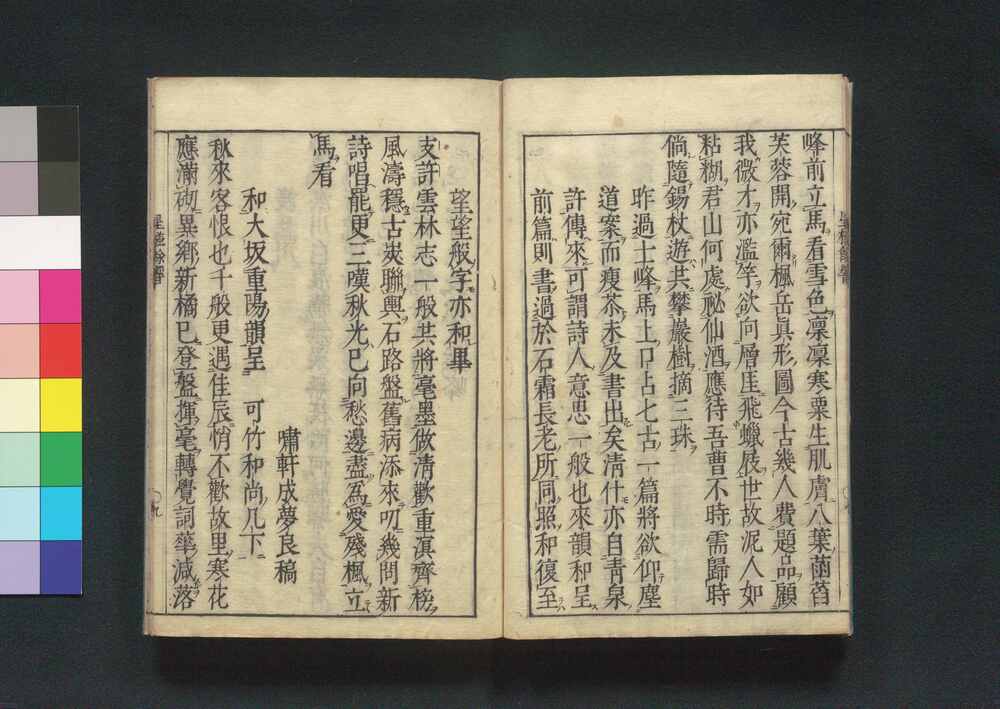 峰前立馬看雪色凛凛寒粟生肌膚八葉菡萏
芙蓉開宛爾楓岳眞形圖今古幾人費題品顧
我微才亦濫竽欲向層厓飛蠟屐世故泥人如
粘糊君山何處祕仙酒應待吾曹不時需歸時
倘隨錫杖遊共攀巖樹摘三珠
昨過士峰馬上口占七古一篇將欲仰塵
道案而瘦茶未及書出矣淸什亦自靑泉
許傳來可謂詩人意思一般也來韻和呈
前篇則書過於石霜長老所同照和復至
望望般字亦和畢
支許雲林志一般共將毫墨做淸歡重溟齊榜
風濤穩古峡聯輿石路盤舊病添來叨幾問新
詩唱罷更三嘆秋光已向愁邊盡爲愛殘楓立
馬看
嘯軒成夢良稿
和大坂重陽韻呈 可竹和尚几下
秋來客恨也千般更遇佳辰悄不歡故里寒花
應滿砌異鄉新橘已登盤揮毫轉覺詞華減落